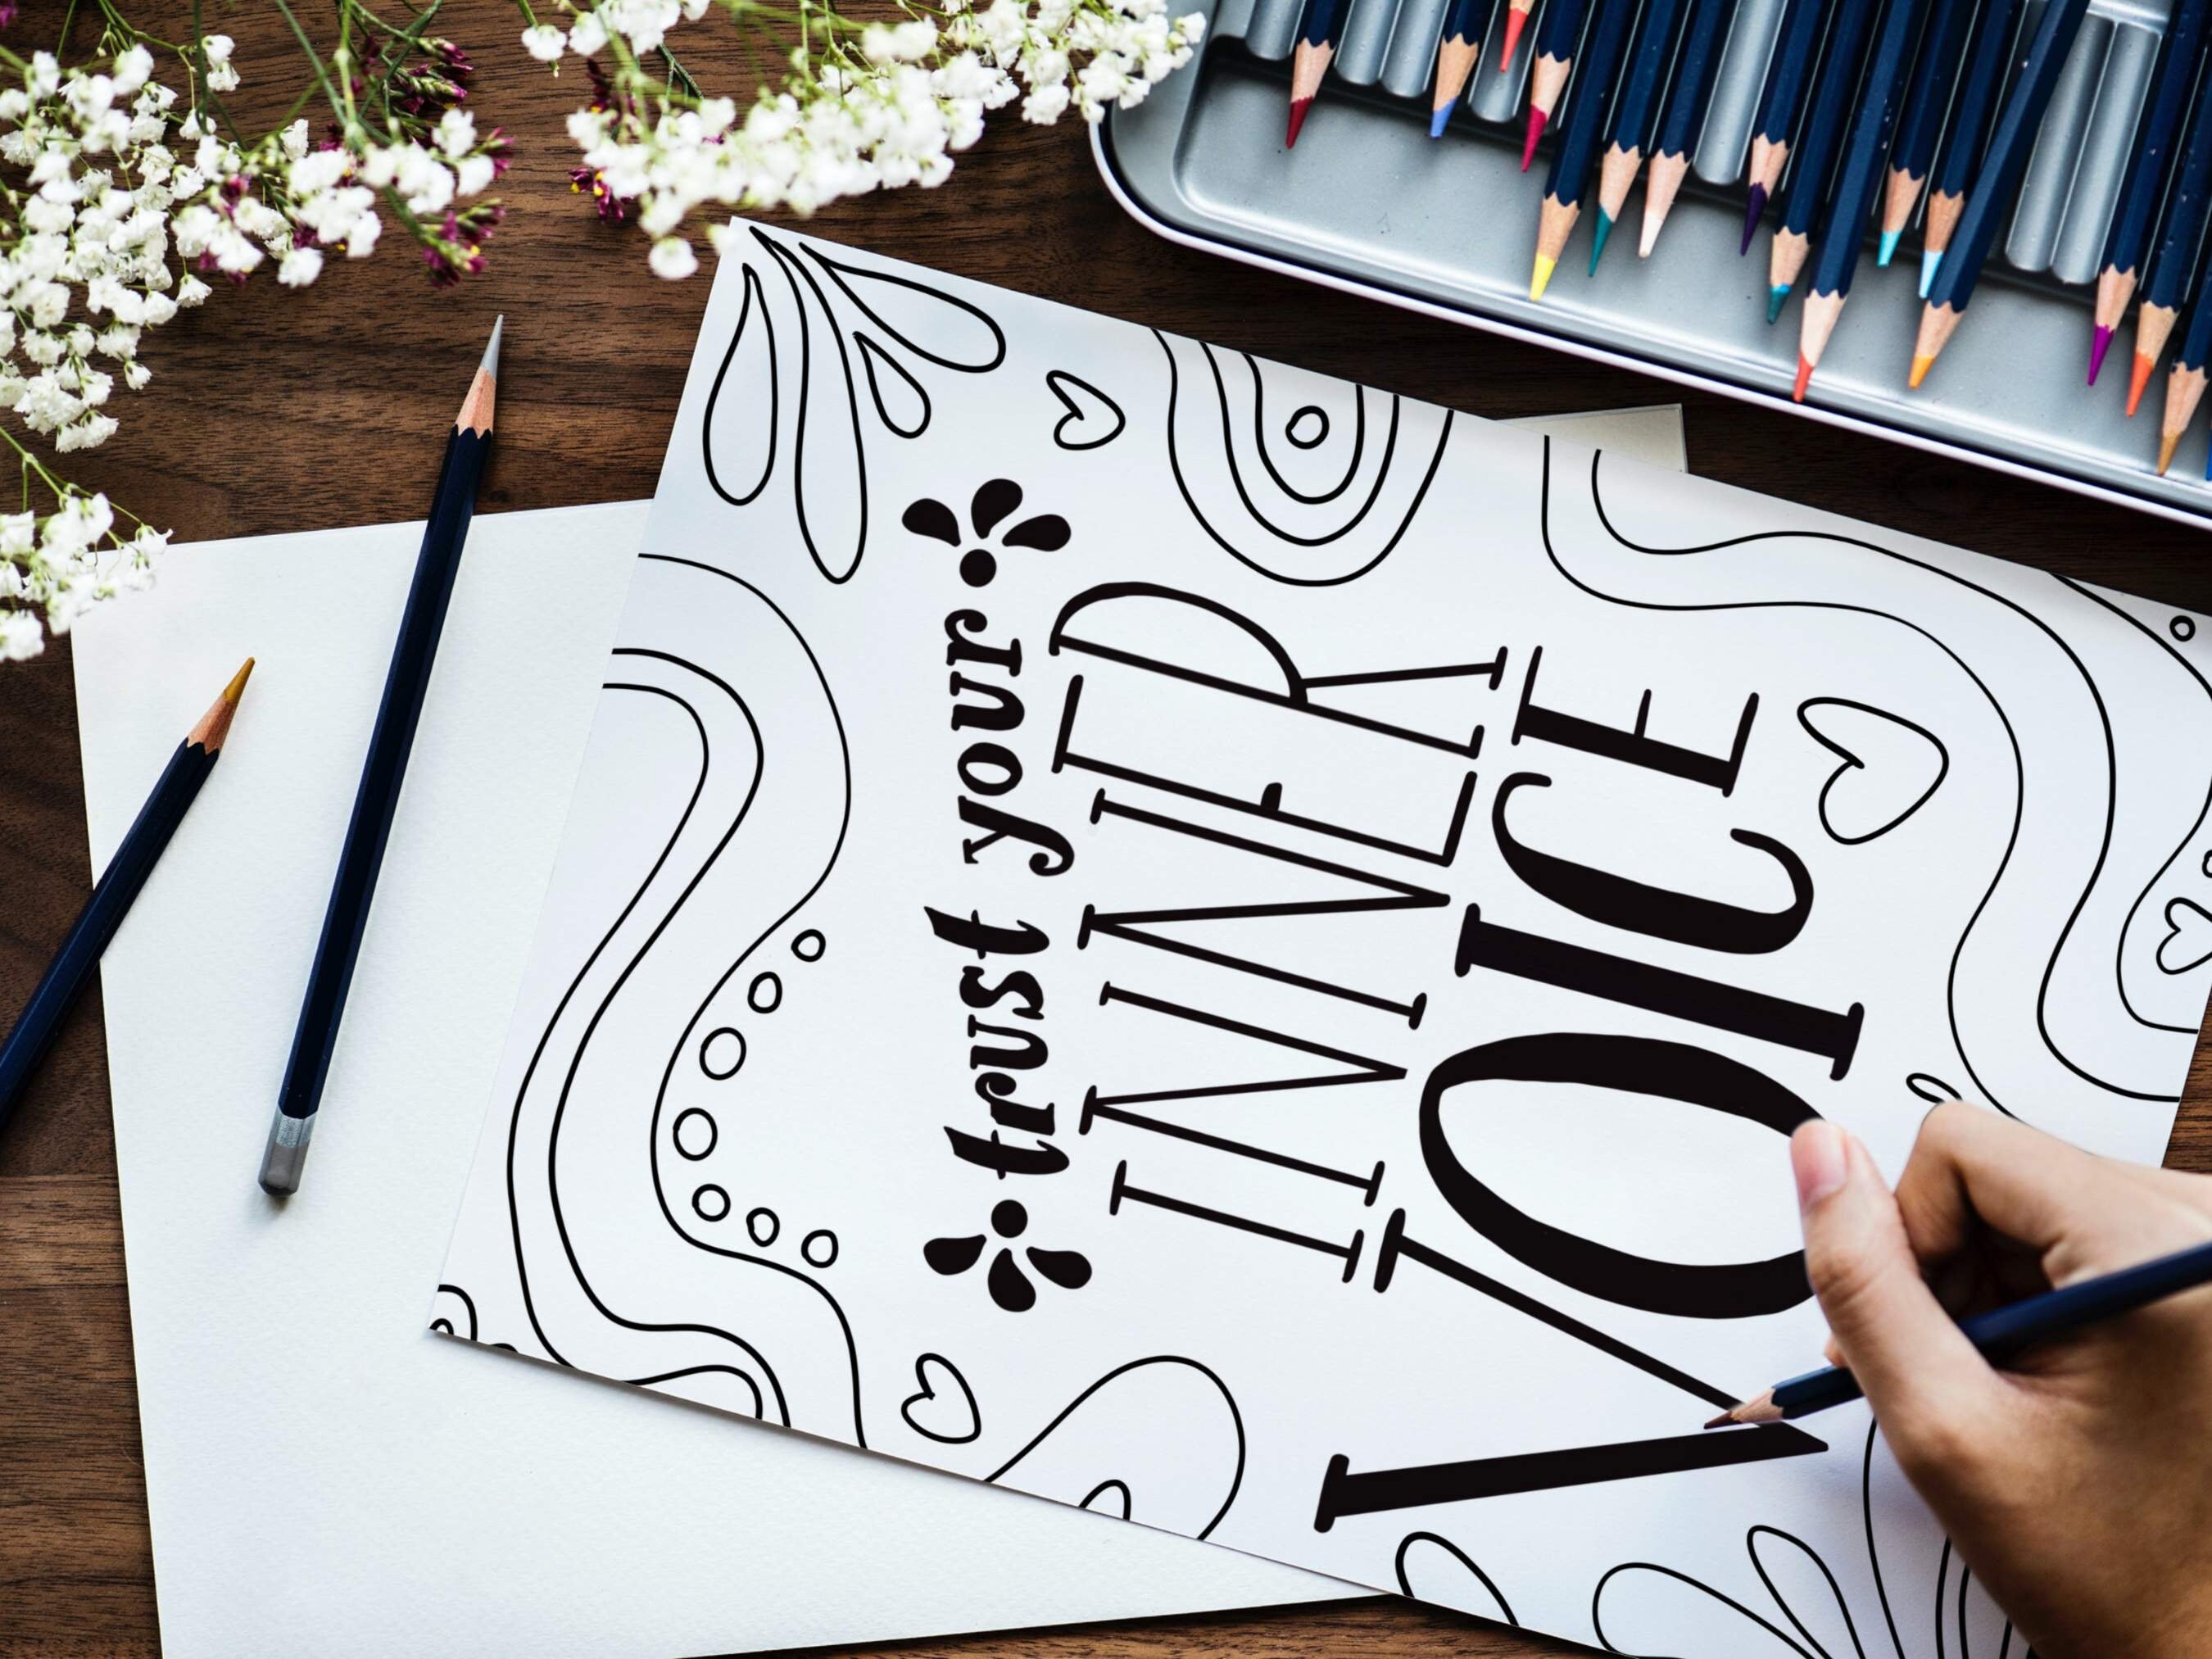 trust your
INNER
VOICE